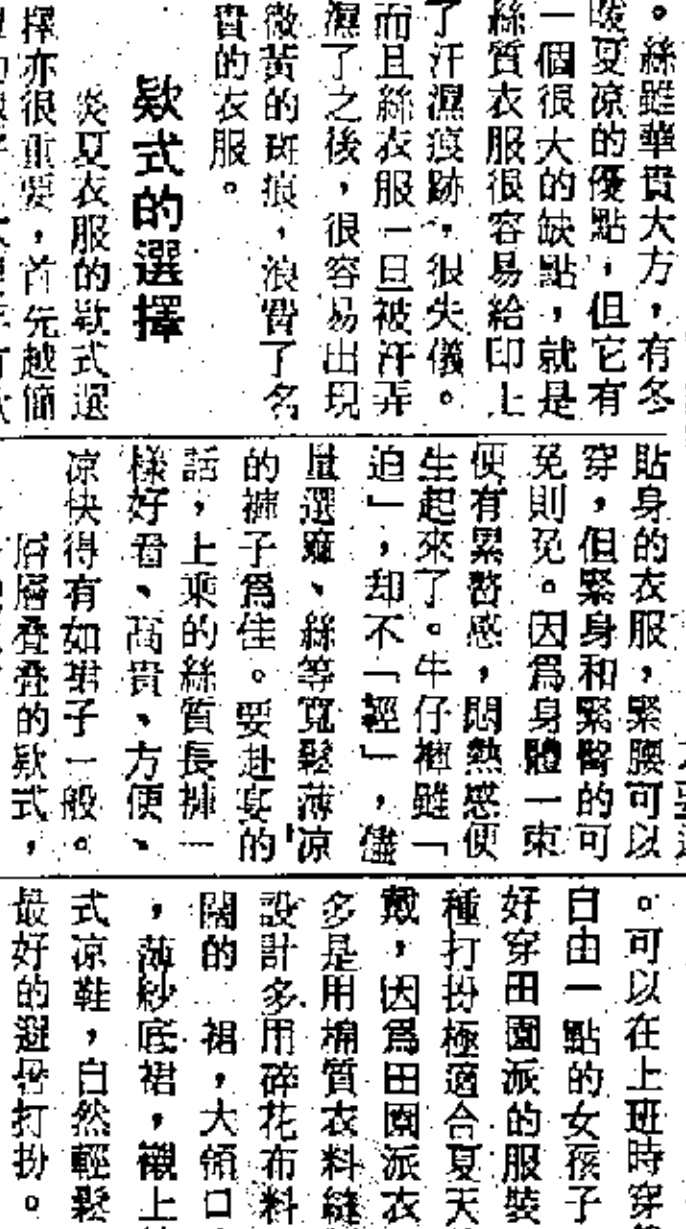 。絲雖華貴大方，有冬
暖夏凉的優點，但它有
一個很大的缺點，就是
絲質衣服很容易給印上
了汗濕痕跡，很失儀。
而且絲衣服一旦被汗弄
濕了之後，很容易出現
微黃的斑痕，浪費了名
貴的衣服。
欵式的選擇
炎夏衣服的欵式選
擇亦很重要，首先越簡
貼身的衣服，緊腰可以
穿，但緊身和緊臀的可
免則免。因爲身體一束
便有累贅感，悶熱感便
生起來了。牛仔褲雖「
迫」，却不「輕」，儘
量選蔴、絲等寬鬆薄凉
的褲子爲佳。要赴宴的
話，上乘的絲質長褲一
樣好看、高貴、方便、
凉快得有如裙子一般。
層層叠叠的欵式，
。可以在上班時穿
自由一點的女孩子
好穿田園派的服裝
種打扮極適合夏天
戴，因爲田園派衣
多是用棉質衣料縫
設計多用碎花布料
闊的 裙，大領口
，薄紗底裙，襯上
式凉鞋，自然輕鬆
最好的避暑打扮。